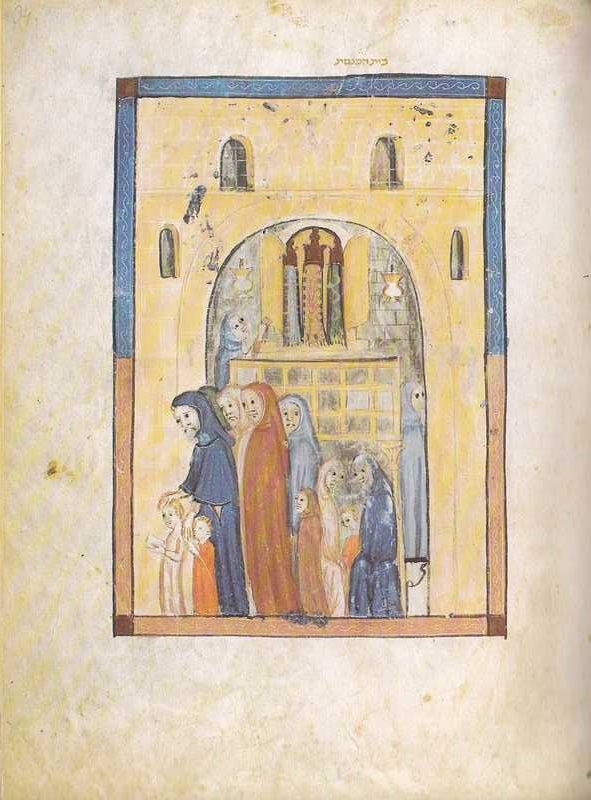 34
בית הכנסת